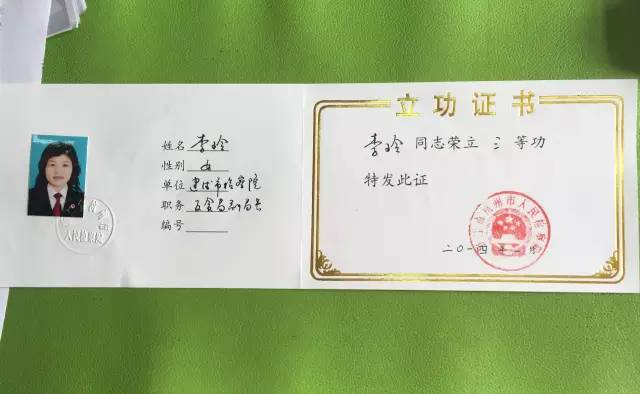 姓名 李玲
性别 女
单位 建德市检察院
职务 反贪局副局长
编号
人民检察院
立功证书
李玲 同志荣立 三 等功
特发此证
杭州市人民检察院
二〇一四年 二月